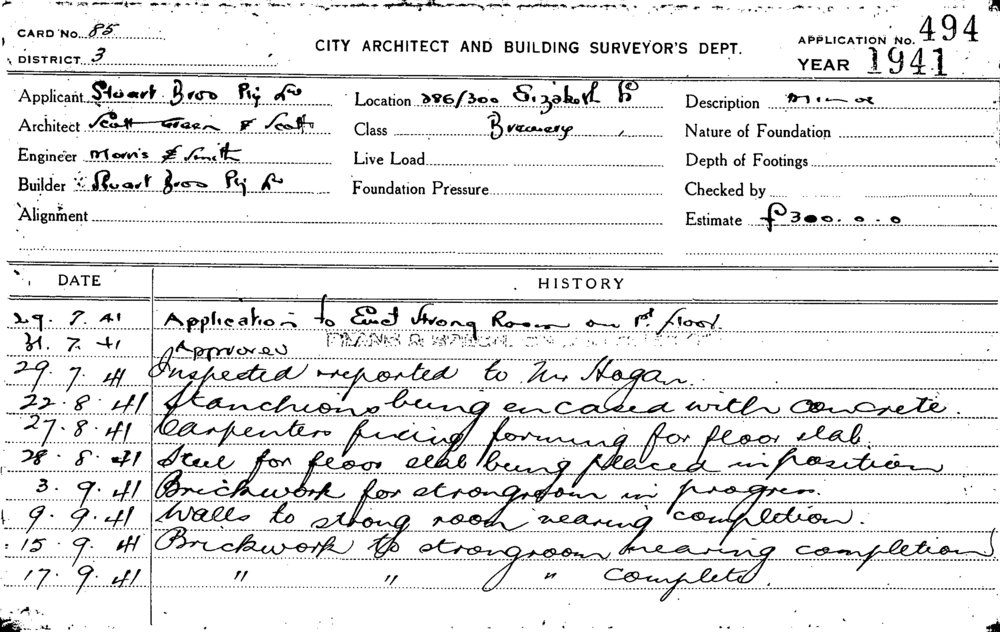 CARD No. 85
DISTRICT 3
CITY ARCHITECT AND BUILDING SURVEYOR'S DEPT.
APPLICATION No. 494
YEAR 1941
Applicant Stuart Bros Pty Ltd
Location 286/300 Elizabeth St
Description Minor
Architect Scott Green & Scott
Class Brewery
Nature of Foundation
Engineer Morris & Smith
Live Load
Depth of Footings
Builder Stuart Bros Pty Ltd
Foundation Pressure
Checked by
Alignment
Estimate £300.0.0
DATE HISTORY
29.7.41 Application to Erect Strong Room on 1st floor.
31.7.41 Approved
29.7.41 Inspected & reported to Mr Hogan.
22.8.41 Stanchions being encased with concrete.
27.8.41 Carpenters fixing forming for floor slab.
28.8.41 Steel for floor slab being placed in position
3.9.41 Brickwork for strongroom in progress.
9.9.41 Walls to strong room nearing completion.
15.9.41 Brickwork to strongroom nearing completion
17.9.41 " " " complete.